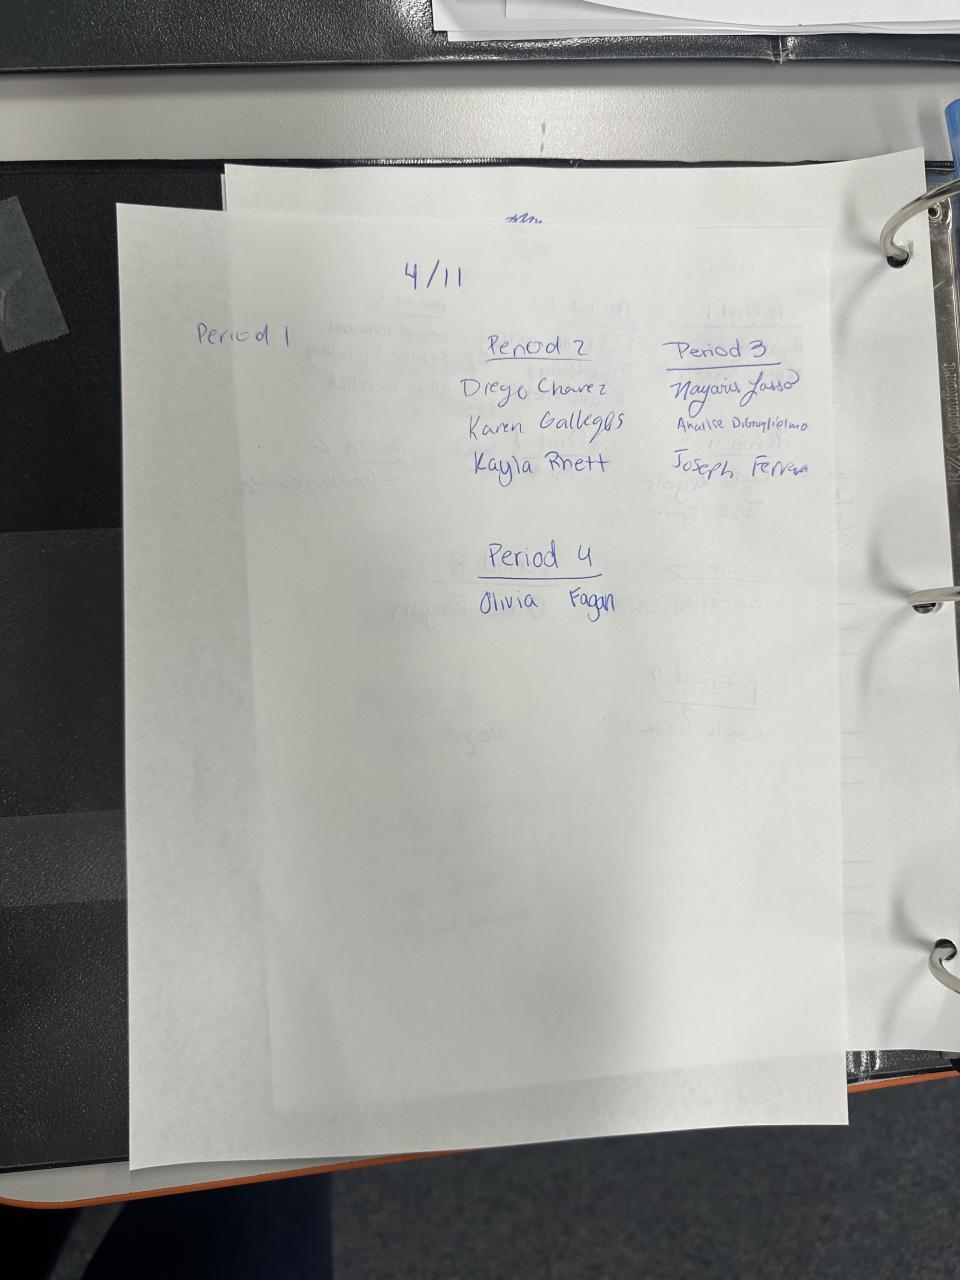 4/11
Period 1
Period 2
Diego Chavez
Karen Gallegos
Kayla Rhett
Period 3
Nayaris Lasso
Analise DiGuglielmo
Joseph Ferrera
Period 4
Olivia Fagan